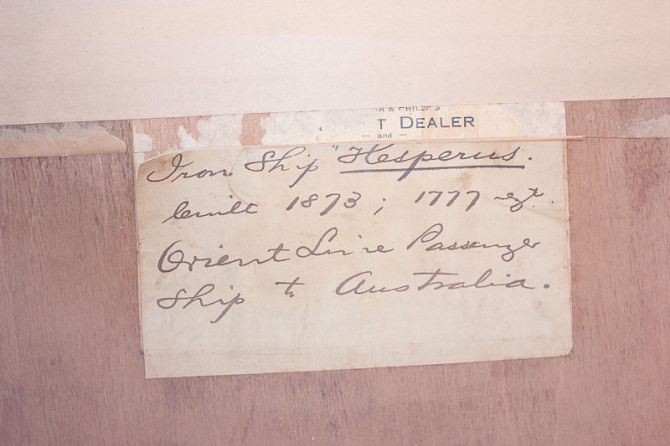 T DEALER
— and —
Iron Ship "Hesperus.
built 1873; 1777 rgt.
Orient Line Passenger
Ship to Australia.